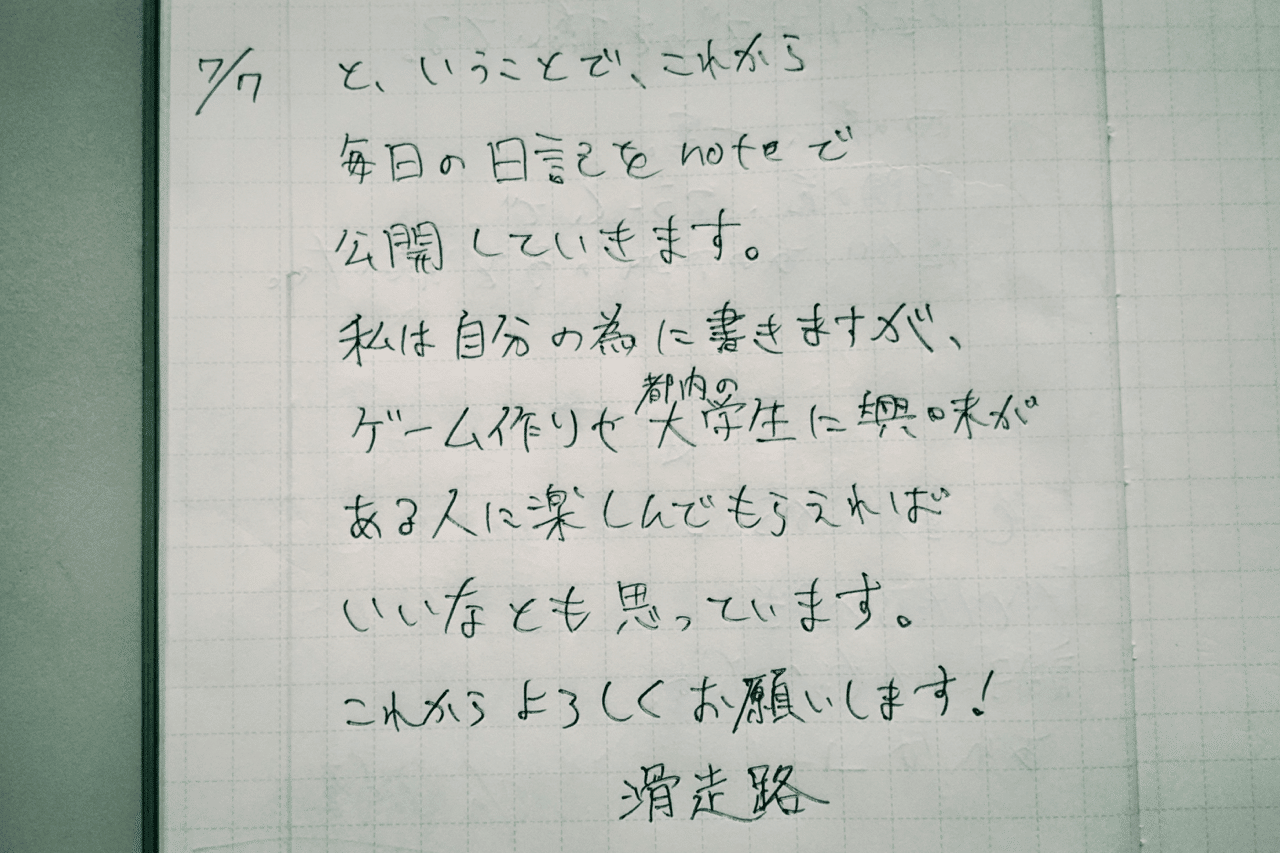 7/7 と、いうことで、これから
毎日の日記をnoteで
公開していきます。
私は自分の為に書きますが、
都内の
ゲーム作りや大学生に興味が
ある人に楽しんでもらえれば
いいなとも思っています。
これからよろしくお願いします!
滑走路